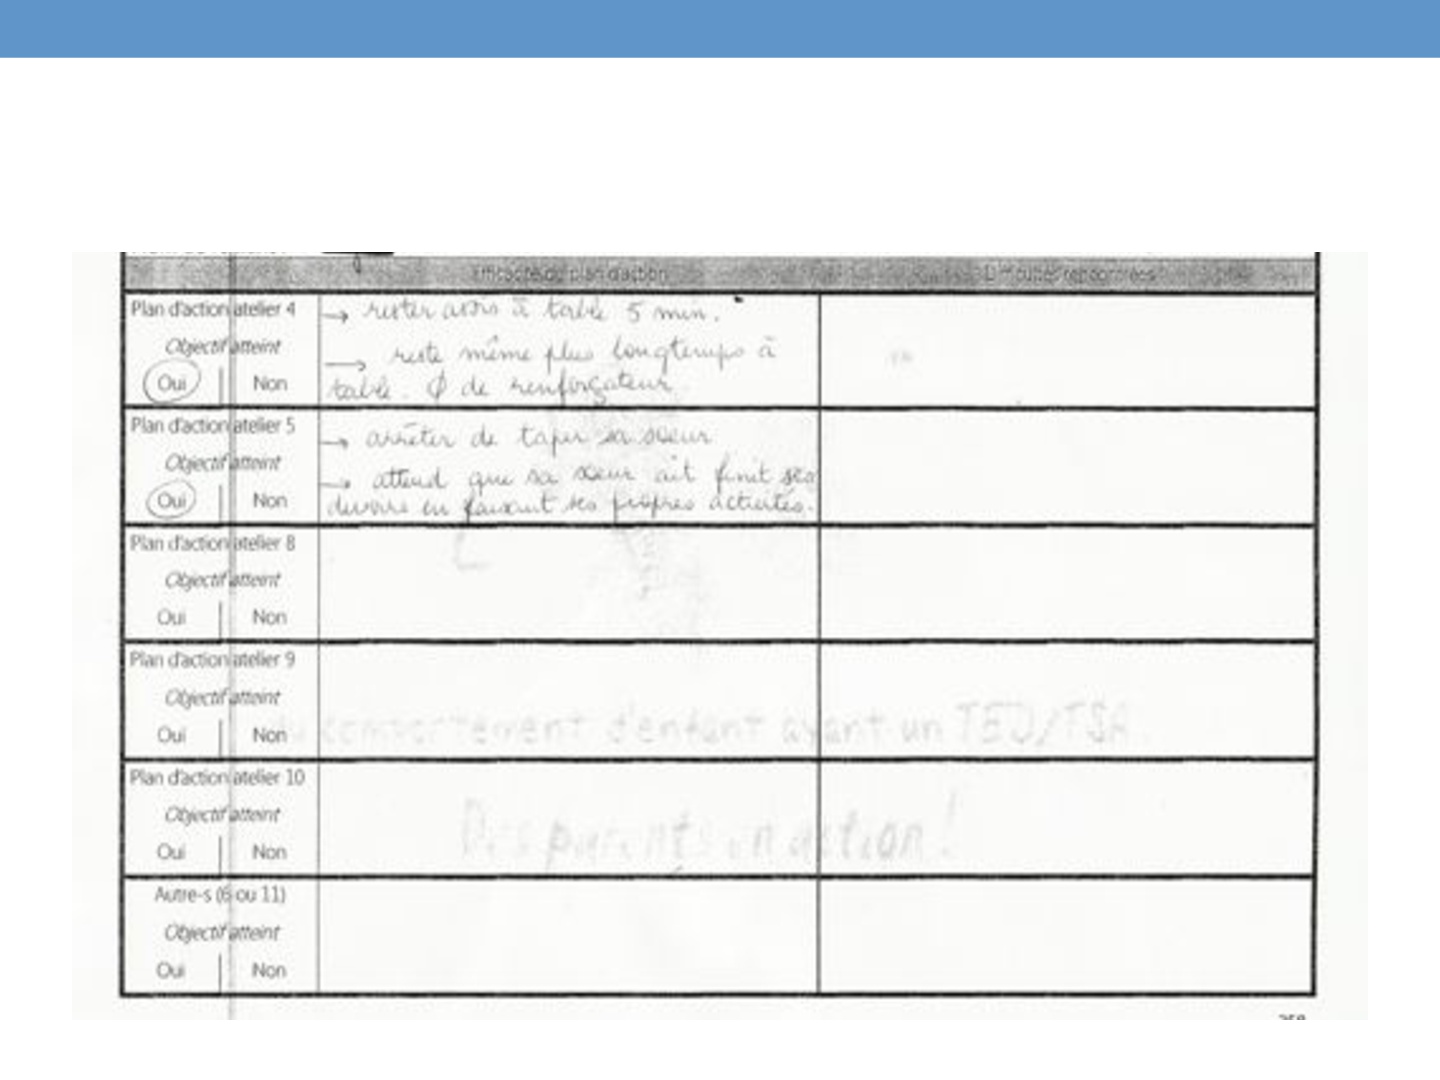 Efficacité du plan d'action
Difficultés rencontrées
Plan d'action atelier 4
Objectif atteint
Oui | Non
→ rester assis à table 5 min.
→ reste même plus longtemps à
table. ∅ de renforçateur
Plan d'action atelier 5
Objectif atteint
Oui | Non
→ arrêter de taper sa soeur
→ attend que sa soeur ait finit ses
devoirs en faisant ses propres activités.
Plan d'action atelier 8
Objectif atteint
Oui | Non
Plan d'action atelier 9
Objectif atteint
Oui | Non
du comportement d'enfant ayant un TED/TSA.
Plan d'action atelier 10
Objectif atteint
Oui | Non
Des parents en action!
Autre-s (6 ou 11)
Objectif atteint
Oui | Non